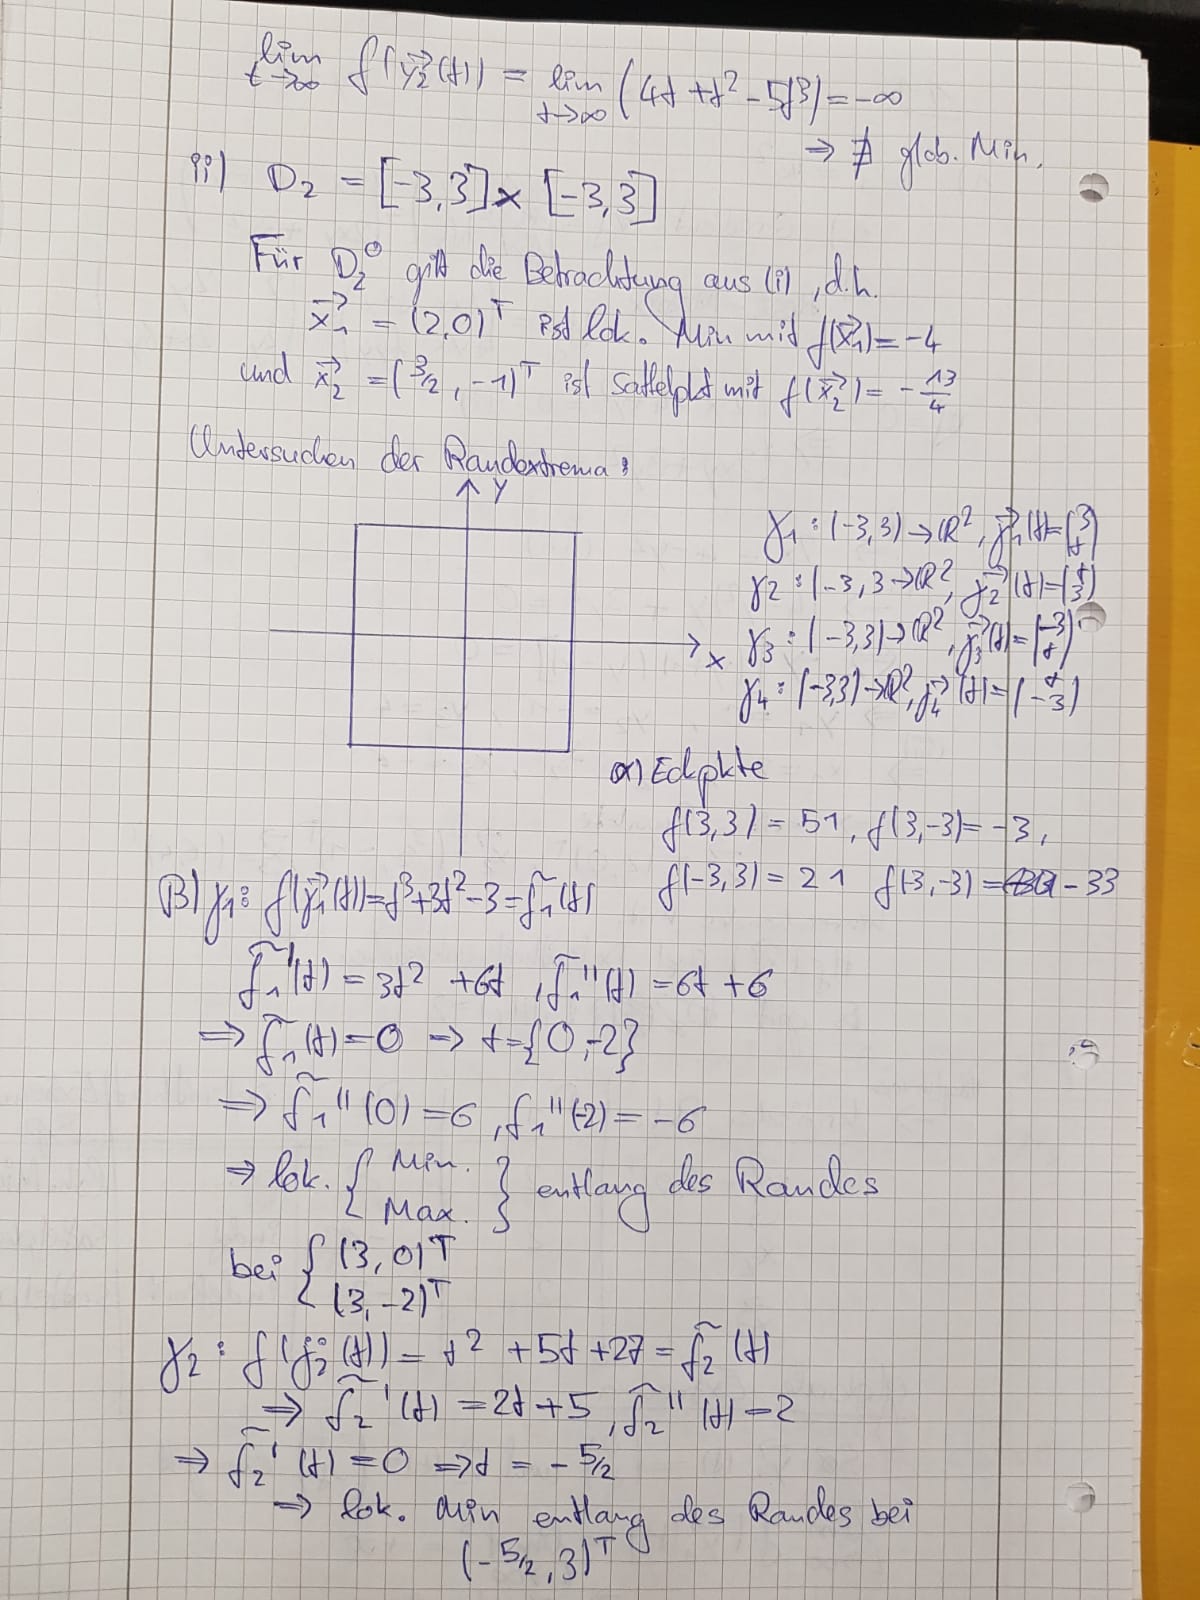 lim t→∞ f(γ⃗2(t)) = lim t→∞ (4t + t² - 5t³) = -∞
⇒ ∄ glob. Min.
ii) D2 = [-3,3] × [-3,3]
Für D2° gilt die Betrachtung aus (i), d.h.
x⃗1 = (2,0)ᵀ ist lok. Min mit f(x⃗1) = -4
und x⃗2 = (3/2, -1)ᵀ ist Sattelpkt mit f(x⃗2) = -13/4
Untersuchen der Randextrema:
y
x
γ1 : (-3,3) → ℝ², γ⃗1(t) = (3 t)
γ2 : (-3,3 → ℝ², γ⃗2(t) = (t 3)
γ3 : (-3,3) → ℝ², γ⃗3(t) = (-3 t)
γ4 : (-3,3) → ℝ², γ⃗4(t) = (t -3)
α) Eckpkte
f(3,3) = 51, f(3,-3) = -3,
f(-3,3) = 21 f(-3,-3) = -33
β) γ1: f(γ⃗1(t)) = t³+3t²-3 = f̃1(t)
f̃1'(t) = 3t² + 6t, f̃1''(t) = 6t + 6
⇒ f̃1(t) = 0 ⇒ t = {0,-2}
⇒ f̃1''(0) = 6, f1''(-2) = -6
⇒ lok. { Min. Max. } entlang des Randes
bei { (3,0)ᵀ
(3,-2)ᵀ
γ2 : f(γ⃗2(t)) = t² + 5t + 27 = f̃2(t)
⇒ f̃2'(t) = 2t + 5, f̃2''(t) = 2
⇒ f̃2'(t) = 0 ⇒ t = -5/2
⇒ lok. Min entlang des Randes bei
(-5/2, 3)ᵀ